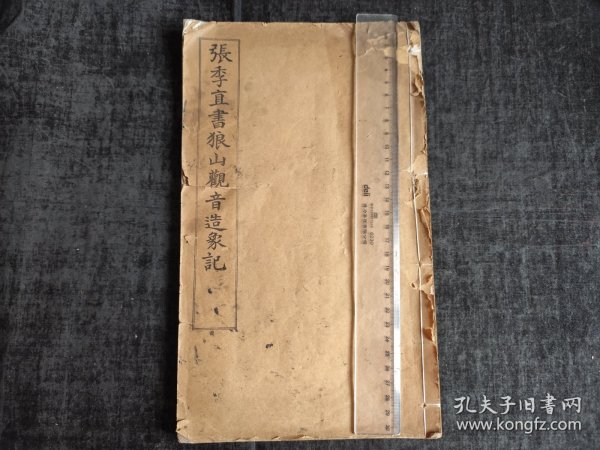 張季直書狼山觀音造象記
deli
孔夫子旧书网
www.kongfz.com